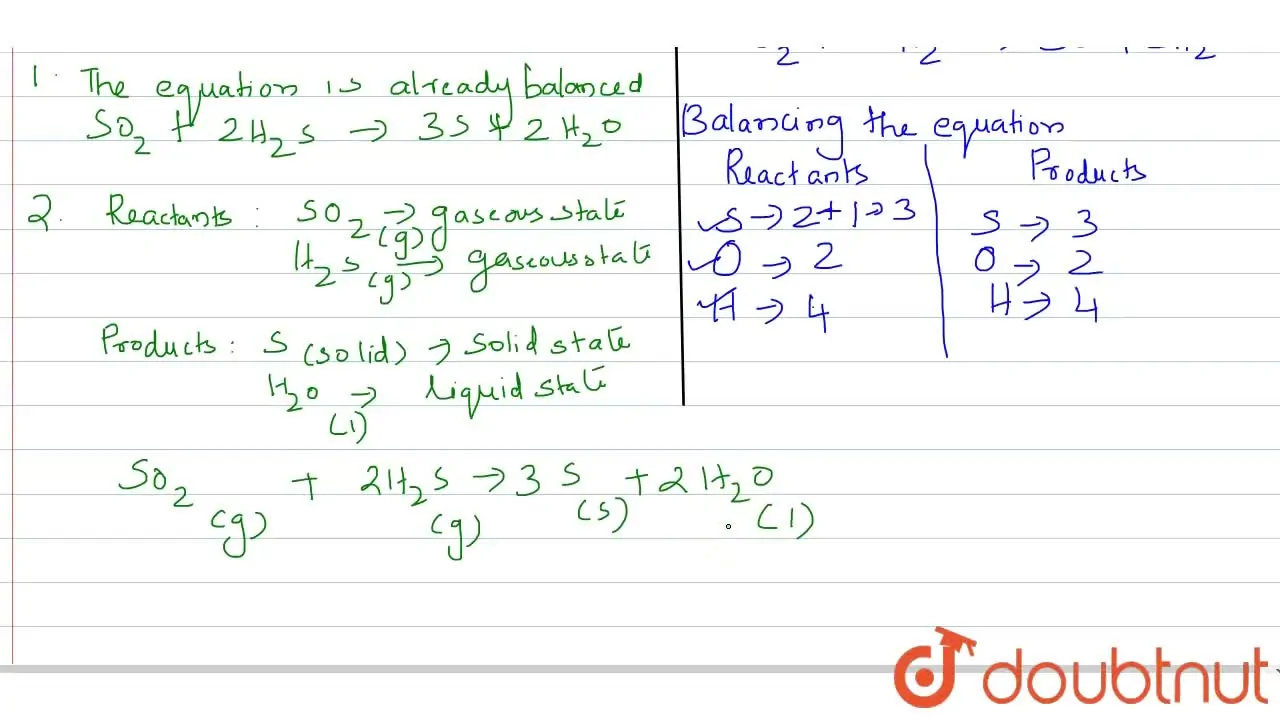 1. The equation is already balanced
SO2 + 2H2S → 3S + 2H2O
2. Reactants : SO2 (g) → gaseous state
H2S (g) → gaseous state
Products : S (solid) → solid state
H2O (l) → liquid state
SO2 (g) + 2H2S (g) → 3S (s) + 2H2O (l)
Balancing the equation
Reactants Products
S → 2+1 → 3 S → 3
O → 2 O → 2
H → 4 H → 4
doubtnut